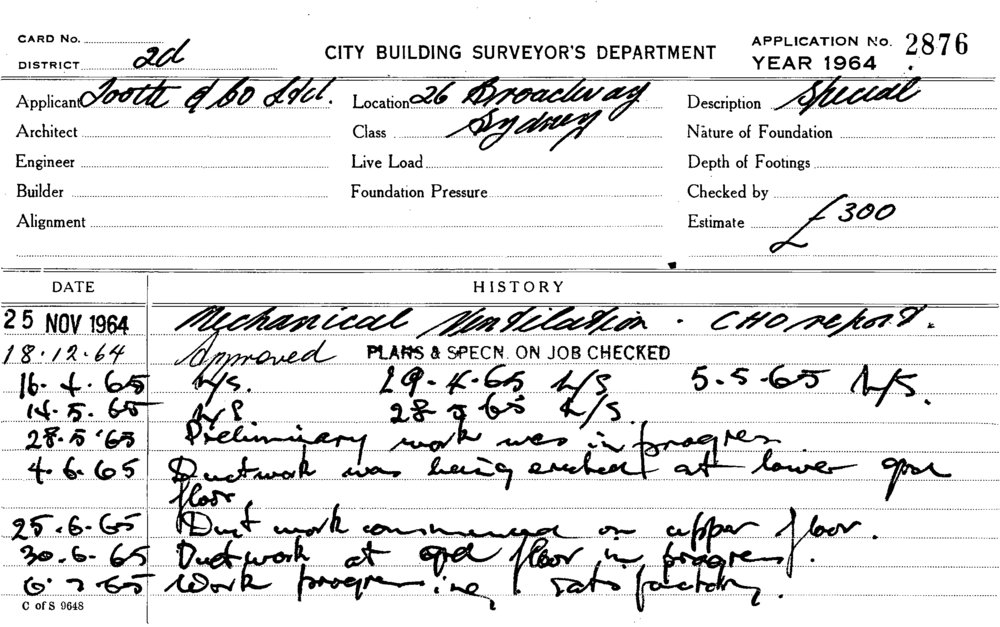 CARD No.
DISTRICT 2d
CITY BUILDING SURVEYOR'S DEPARTMENT
APPLICATION No. 2876
YEAR 1964
Applicant Tooth & Co Ltd.
Location 26 Broadway
Sydney
Description Special
Architect
Class
Nature of Foundation
Engineer
Live Load
Depth of Footings
Builder
Foundation Pressure
Checked by
Alignment
Estimate £300
DATE HISTORY
25 NOV 1964 Mechanical Ventilation . CHO report.
18.12.64 Approved PLANS & SPECN. ON JOB CHECKED
16.4.65 N/S. 29.4.65 N/S 5.5.65 N/S.
14.5.65 N/S 28.5.65 N/S.
28.5.65 Preliminary work was in progress
4.6.65 Ductwork was being erected at lower grd
floor
25.6.65 Duct work commenced on upper floor.
30.6.65 Ductwork at grd floor in progress.
6.7.65 Work progressing satisfactory.
C of S 9648